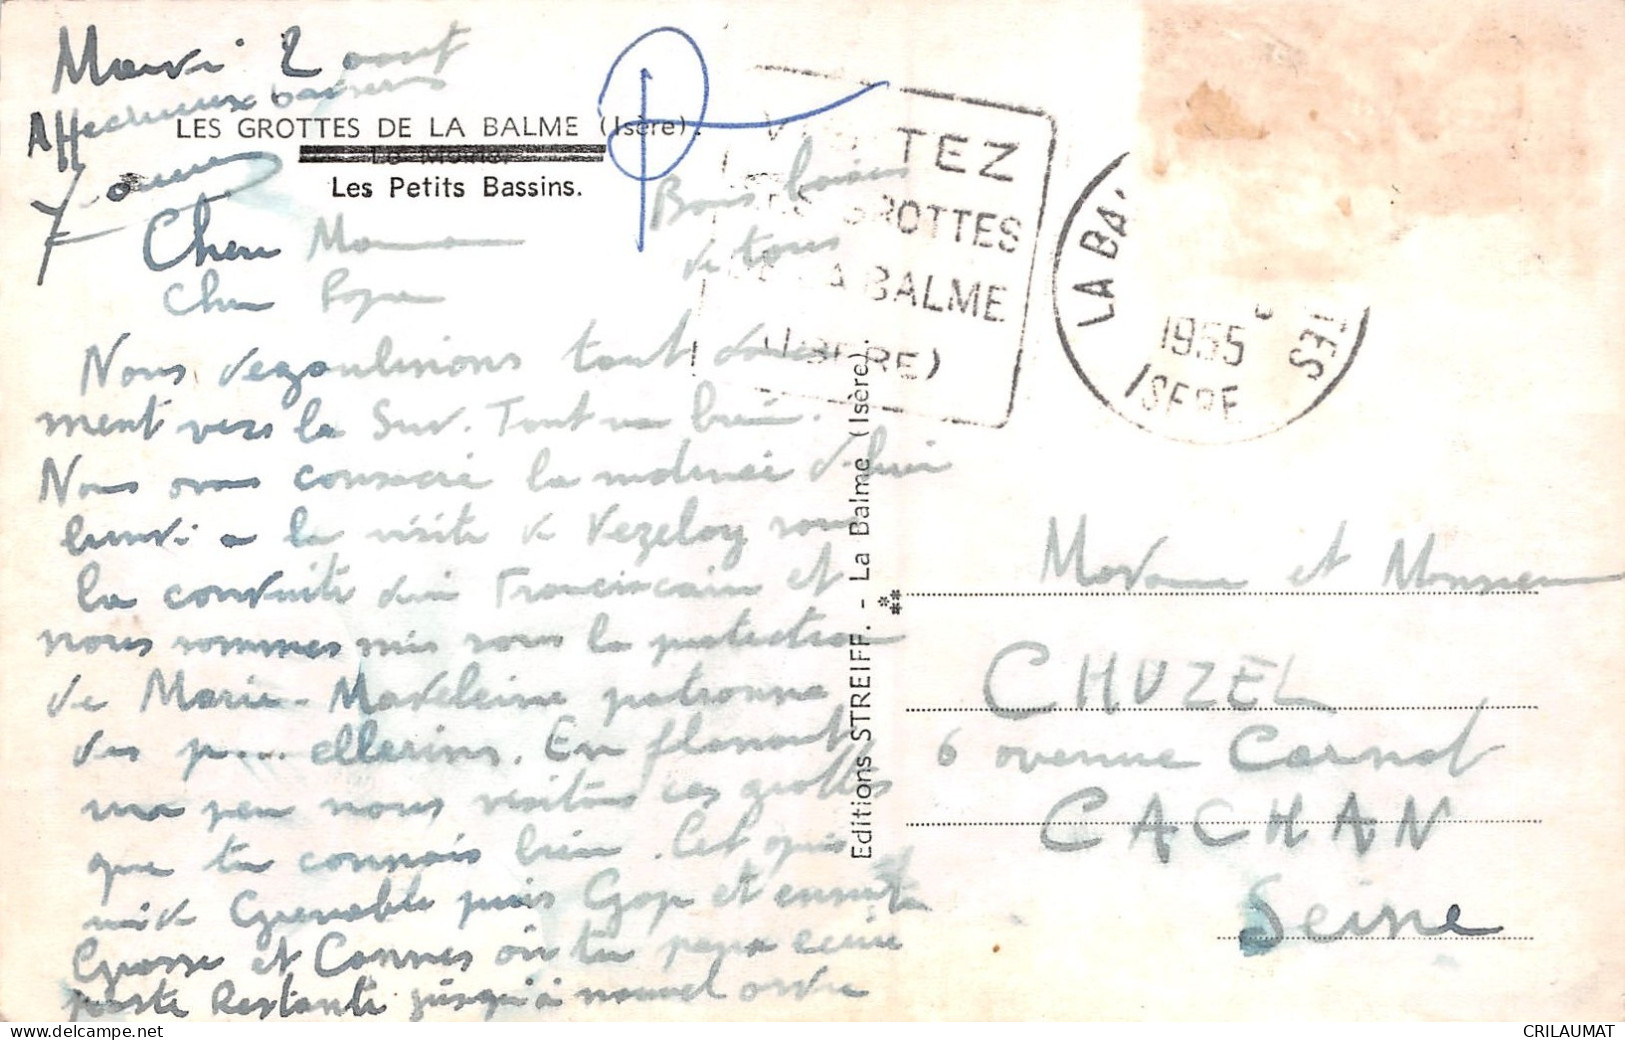 Mardi 2 aout
Affectueux baisers
LES GROTTES DE LA BALME (Isère).
Les Petits Bassins.
Bons baisers
de tous
Chere Maman
Cher Papa
VISITEZ
LES GROTTES
DE LA BALME
(ISERE)
LA BA
1955
ISERE
TES
Nous degoulinons tout douce
ment vers le Sud. Tout va bien.
Nous avons consacré la matinée d'hier
lundi a la visite de Vezelay sous
la conduite d'un Franciscain et
nous sommes mis sous la protection
de Marie-Madeleine patronne
des p... ellerins. En flanant
un peu nous visitons ces grottes
que tu connais bien. Cet apres
midi Grenoble puis Gap et ensuite
Grasse et Cannes où tu peux ecrire
poste Restante jusqu'à nouvel ordre
Editions STREIFF. - La Balme (Isère).
Madame et Monsieur
CHUZEL
6 avenue Carnot
CACHAN
Seine
CRILAUMAT